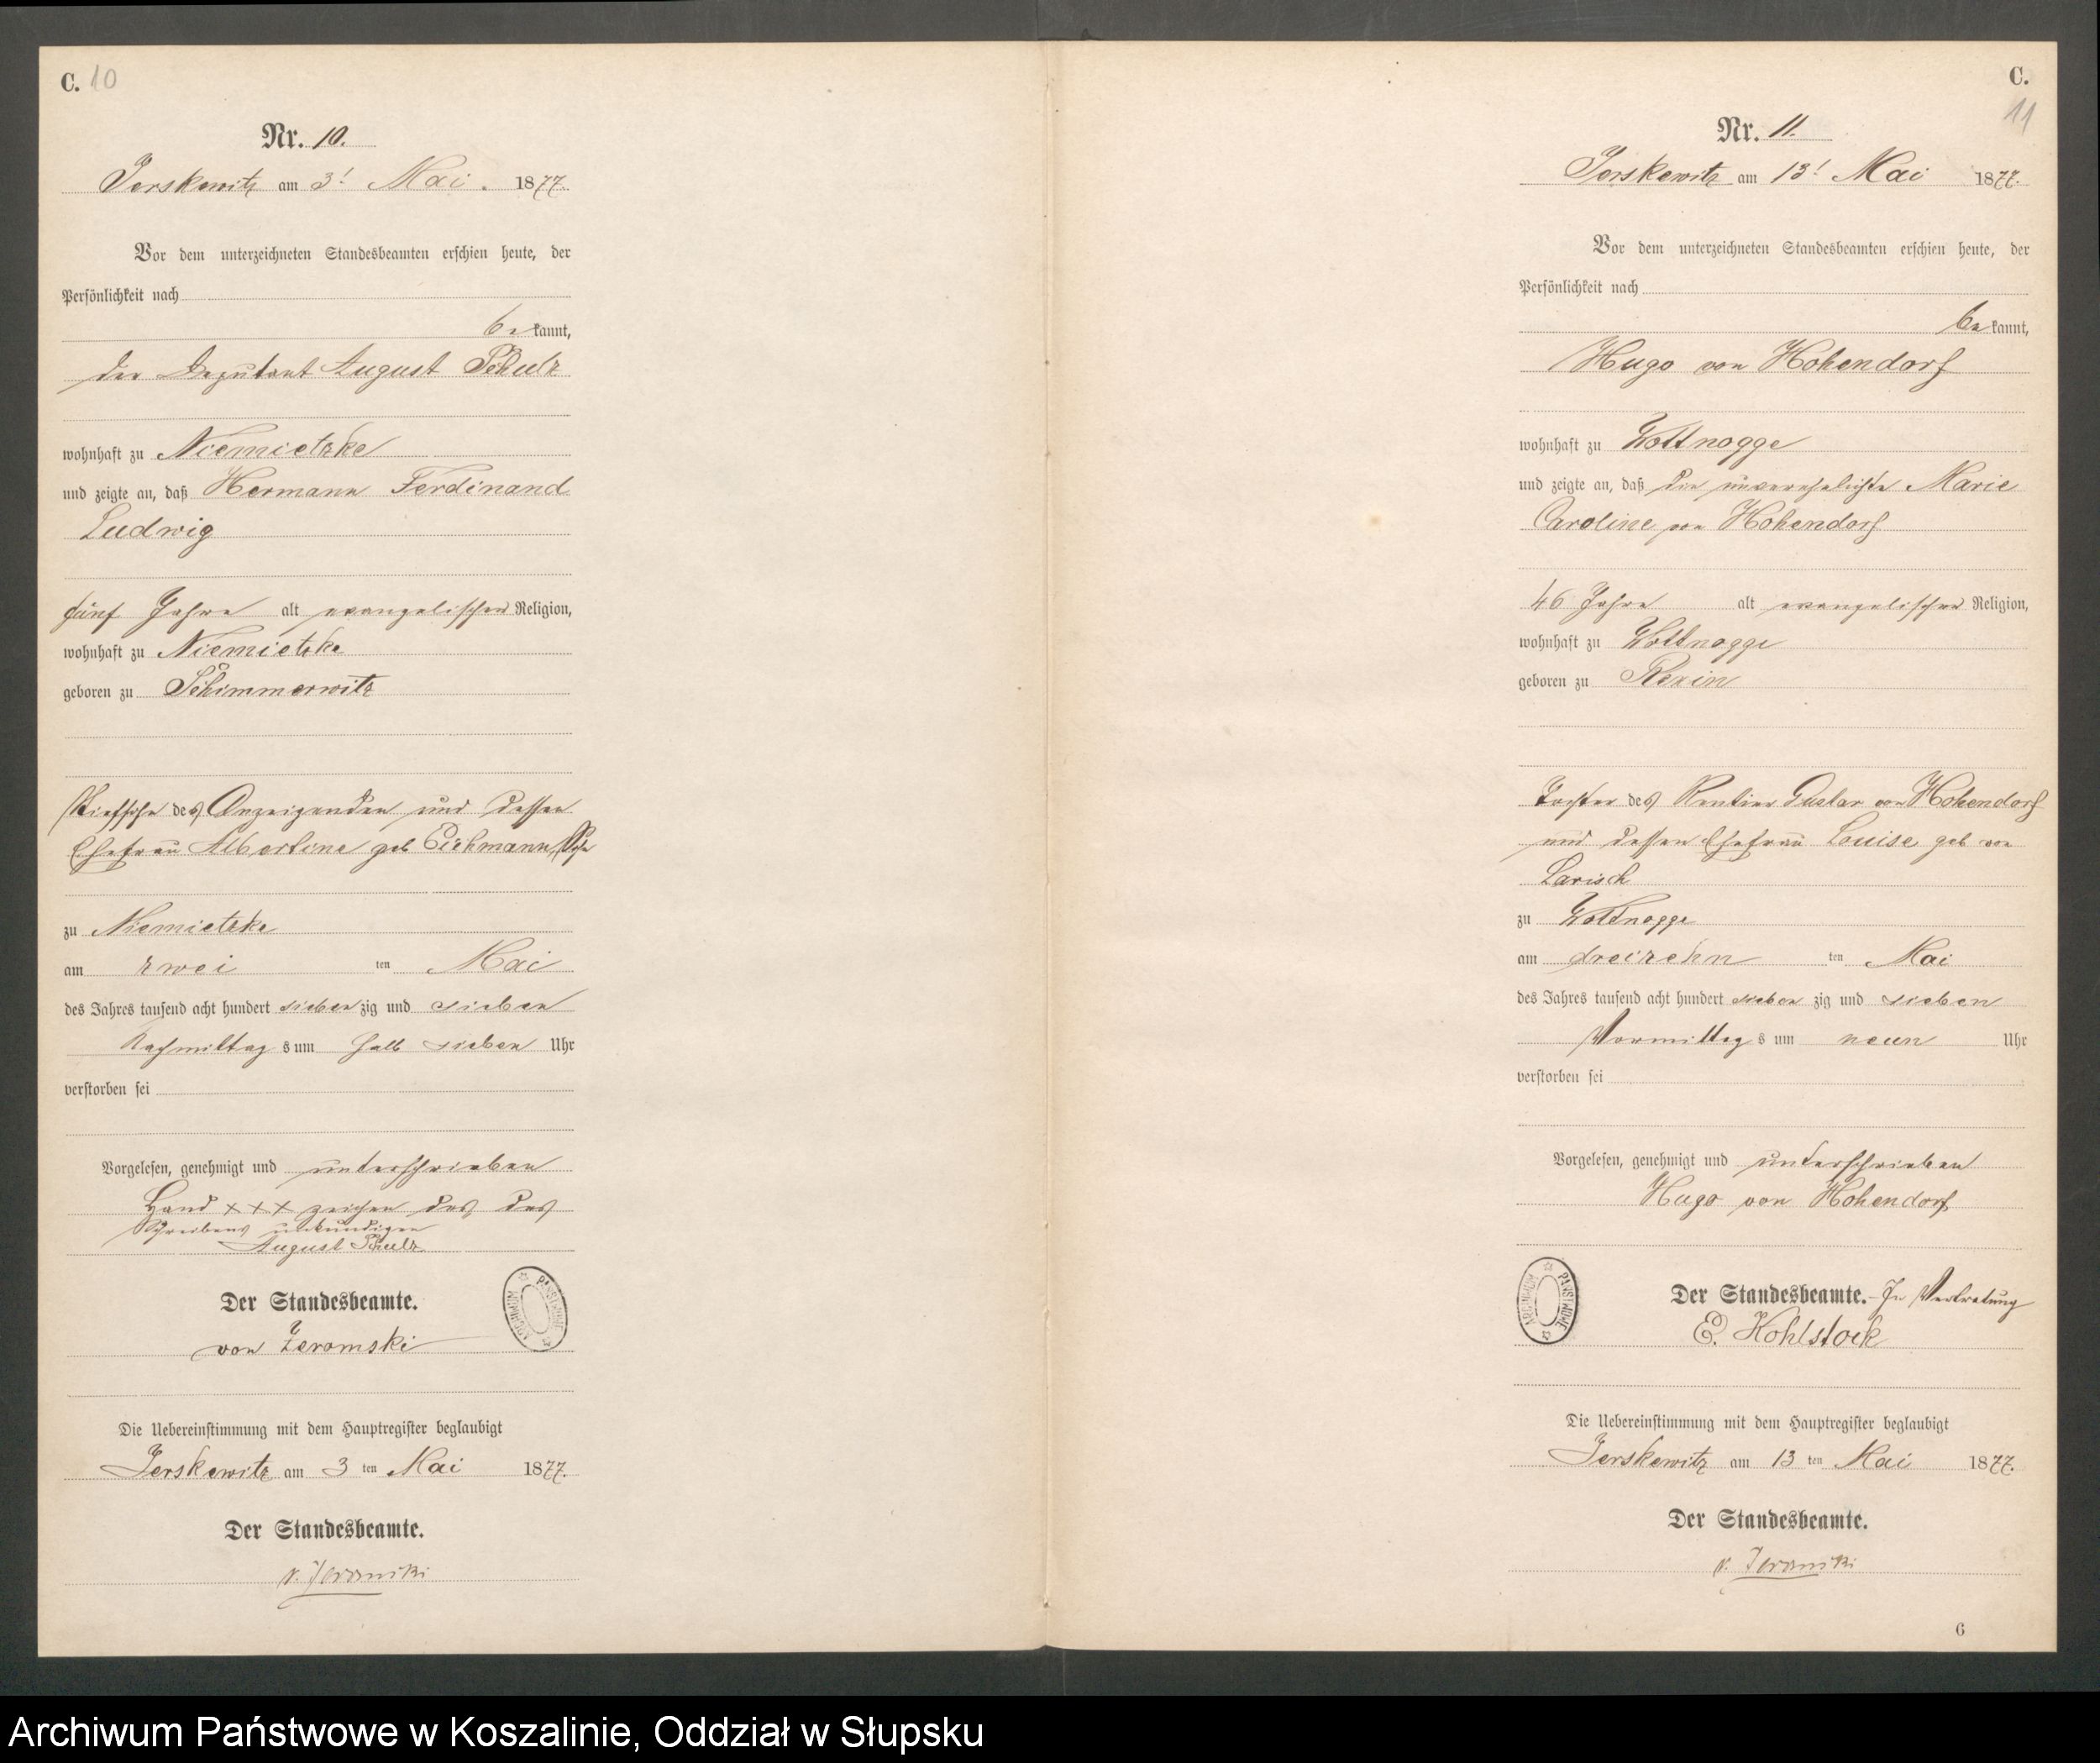 C. 10
Nr. 10.
Jerskewitz am 3t Mai. 1877.
Vor dem unterzeichneten Standesbeamten erschien heute, der
Persönlichkeit nach
bekannt,
der Deputant August Schulz
wohnhaft zu Niemietzke
und zeigte an, daß Hermann Ferdinand
Ludwig
fünf Jahre alt evangelischer Religion,
wohnhaft zu Niemietzke
geboren zu Schimmerwitz
Stiefsohn des Anzeigenden und dessen
Ehefrau Albertine geb Eichmann
zu Niemietzke
am zwei ten Mai
des Jahres tausend acht hundert siebenzig und sieben
Nachmittags um halb sieben Uhr
verstorben sei
Vorgelesen, genehmigt und unterschrieben
Hand xxx zeichen des des
Schreibens unkundigen
August Schulz
Der Standesbeamte.
von Zeromski
Die Uebereinstimmung mit dem Hauptregister beglaubigt
Jerskewitz am 3 ten Mai 1877.
Der Standesbeamte.
v. Zeromski
ARCHIWUM PAŃSTWOWE
C.
11
Nr. 11.
Jerskewitz am 13t Mai 1877.
Vor dem unterzeichneten Standesbeamten erschien heute, der
Persönlichkeit nach
bekannt,
Hugo von Hohendorf
wohnhaft zu Wottnogge
und zeigte an, daß die unverehelichte Marie
Caroline von Hohendorf
46 Jahre alt evangelischer Religion,
wohnhaft zu Wottnogge
geboren zu Rexin
Tochter des Rentier Gustav von Hohendorf
und dessen Ehefrau Louise geb von
Larisch
zu Wottnogge
am dreizehn ten Mai
des Jahres tausend acht hundert siebenzig und sieben
Vormittags um neun Uhr
verstorben sei
Vorgelesen, genehmigt und unterschrieben
Hugo von Hohendorf
Der Standesbeamte. In Vertretung
E. Kohlstock
ARCHIWUM PAŃSTWOWE
Die Uebereinstimmung mit dem Hauptregister beglaubigt
Jerskewitz am 13 ten Mai 1877.
Der Standesbeamte.
v. Zeromski
6
Archiwum Państwowe w Koszalinie, Oddział w Słupsku